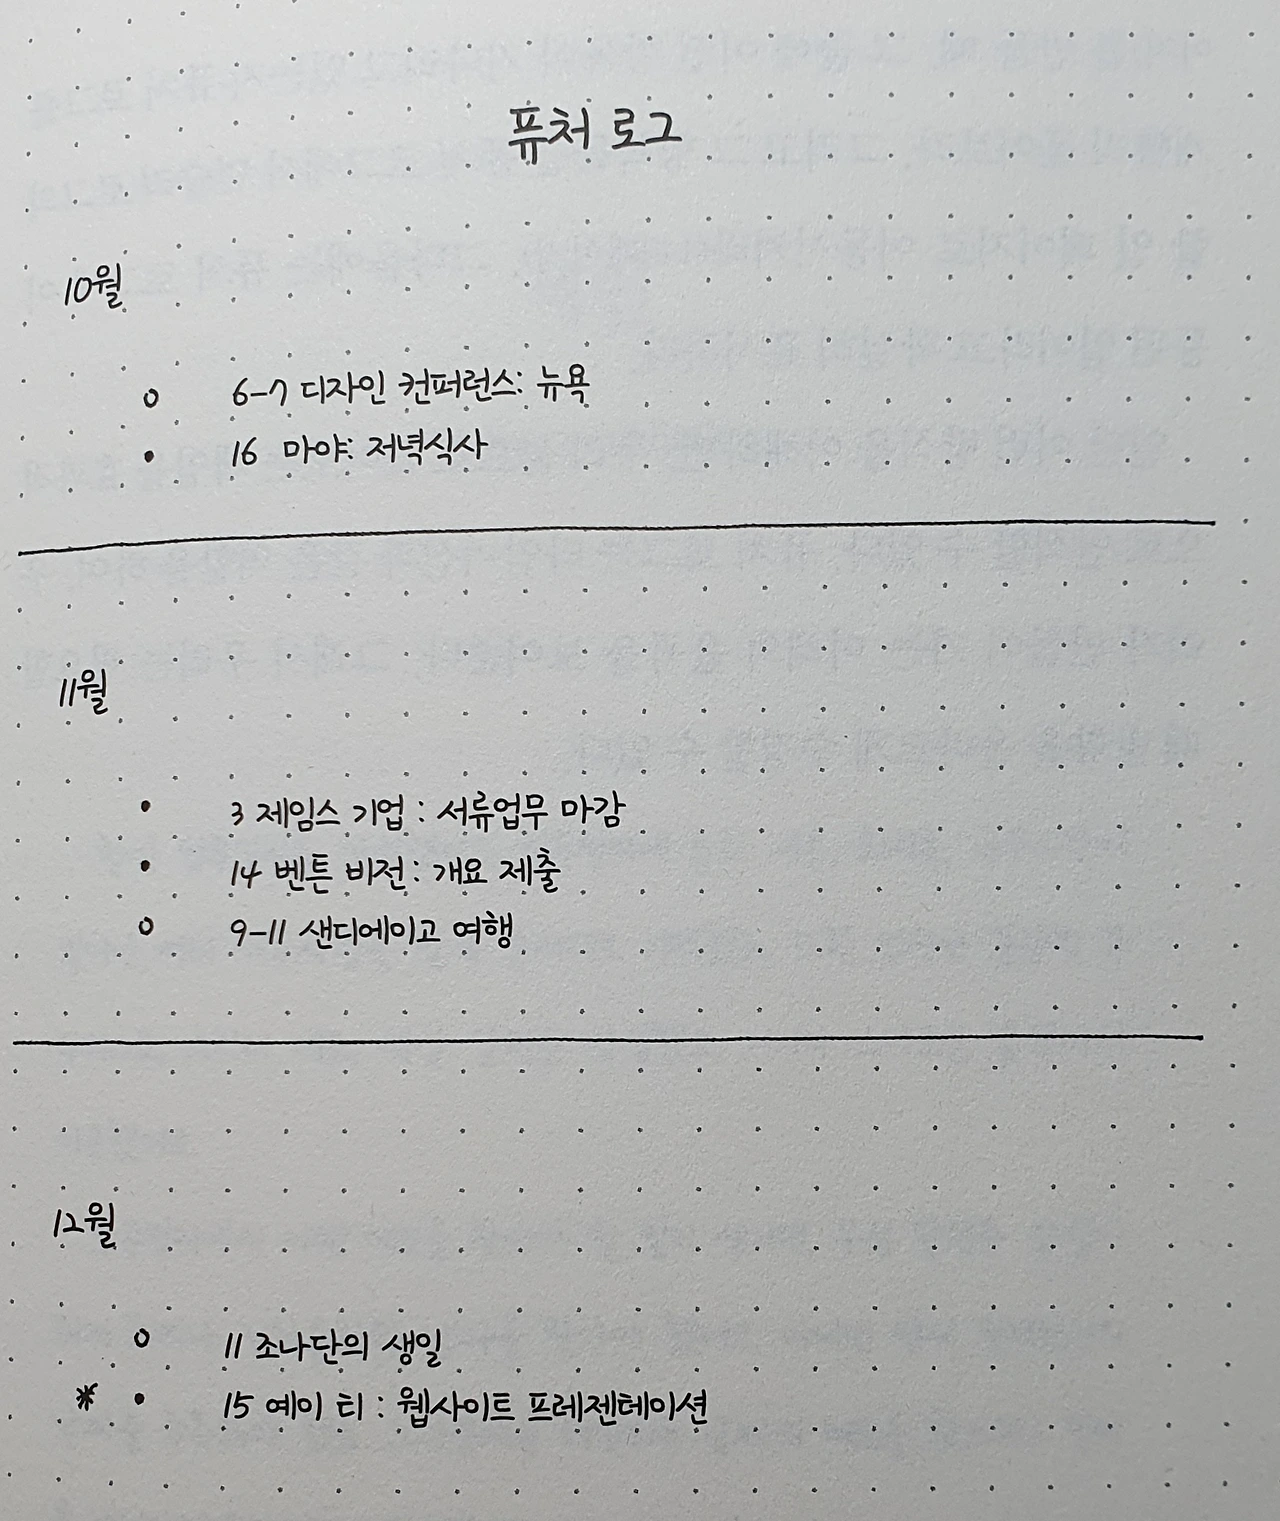 퓨처 로그
10월
o 6-7 디자인 컨퍼런스: 뉴욕
• 16 마야: 저녁식사
11월
• 3 제임스 기업 : 서류업무 마감
• 14 벤튼 비전 : 개요 제출
o 9-11 샌디에이고 여행
12월
o 11 조나단의 생일
* • 15 에이 티 : 웹사이트 프레젠테이션